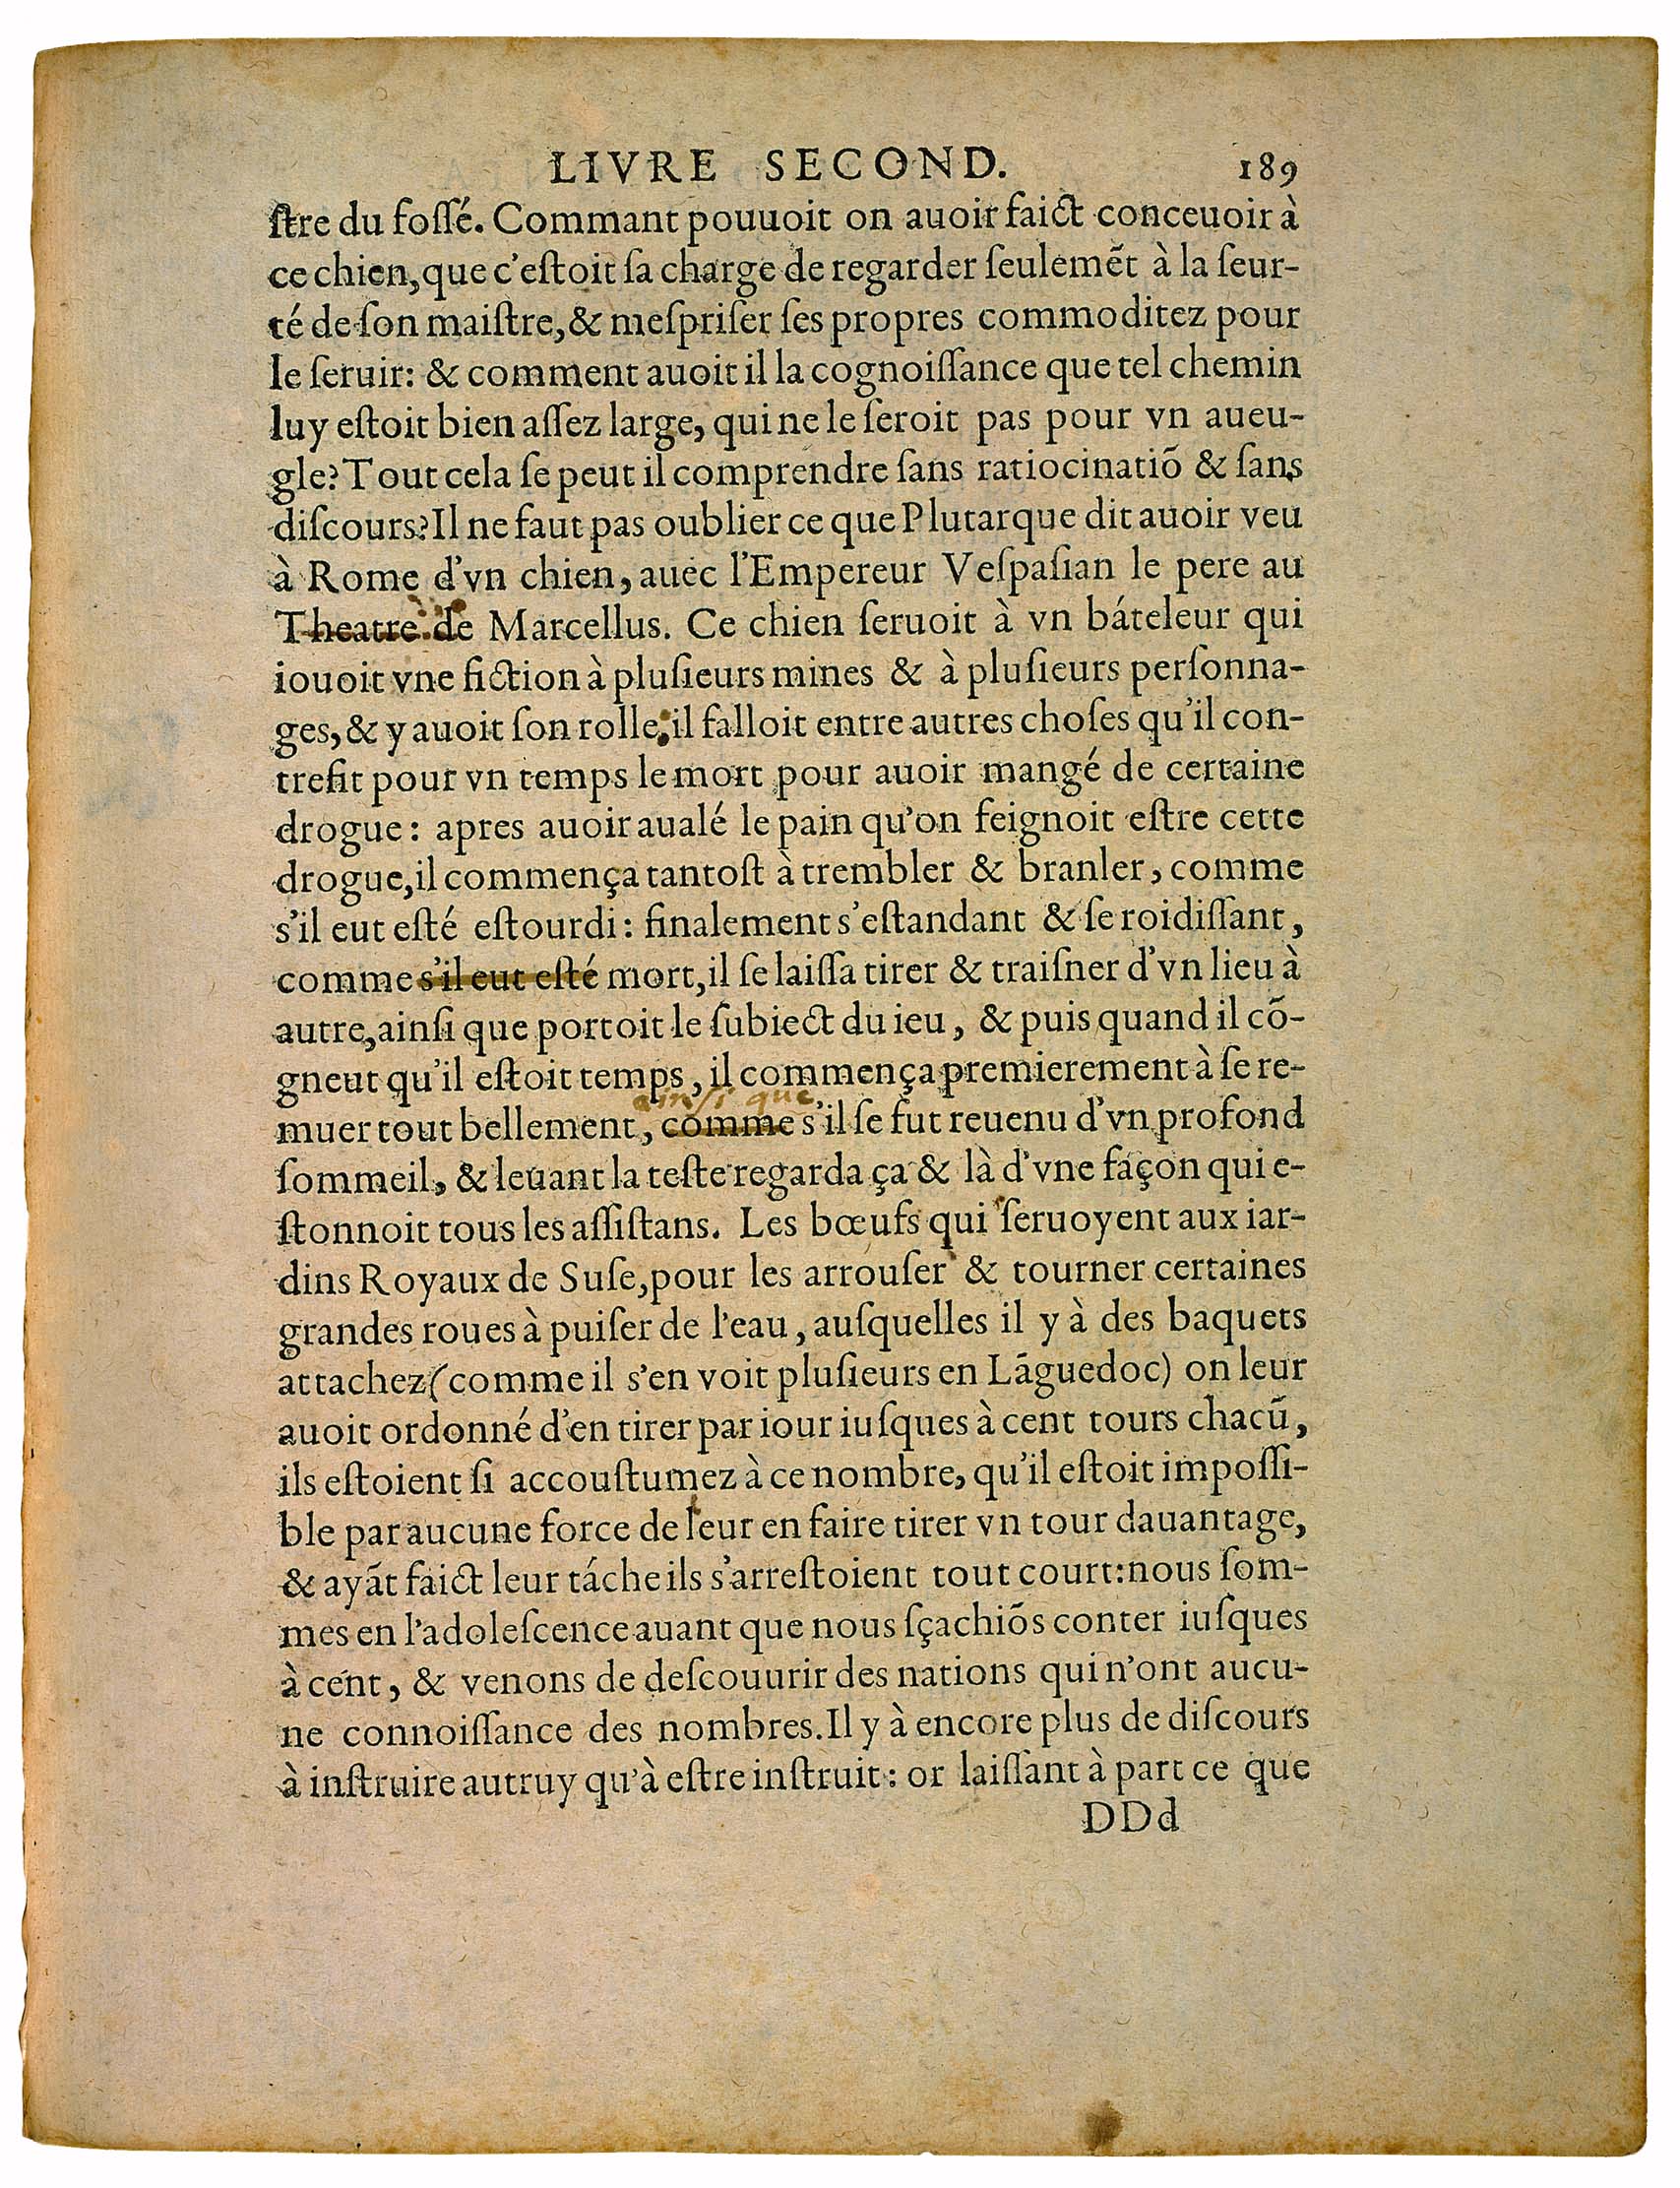 LIVRE SECOND. 189
ſtre du foſſé. Commant pouuoit on auoir faict conceuoir à
ce chien, que c'eſtoit ſa charge de regarder ſeulemẽt à la ſeur-
té de ſon maiſtre, & meſpriſer ſes propres commoditez pour
le ſeruir: & comment auoit il la cognoiſſance que tel chemin
luy eſtoit bien aſſez large, qui ne le ſeroit pas pour vn aueu-
gle? Tout cela ſe peut il comprendre ſans ratiocinatiõ & ſans
diſcours? Il ne faut pas oublier ce que Plutarque dit auoir veu
à Rome d'vn chien, auec l'Empereur Veſpaſian le pere au
Theatre de Marcellus. Ce chien ſeruoit à vn báteleur qui
iouoit vne fiction à pluſieurs mines & à pluſieurs perſonna-
ges, & y auoit ſon rolle: il falloit entre autres choſes qu'il con-
trefit pour vn temps le mort pour auoir mangé de certaine
drogue: apres auoir aualé le pain qu'on feignoit eſtre cette
drogue, il commença tantoſt à trembler & branler, comme
s'il eut eſté eſtourdi: finalement s'eſtandant & ſe roidiſſant,
comme s'il eut eſté mort, il ſe laiſſa tirer & traiſner d'vn lieu à
autre, ainſi que portoit le ſubiect du ieu, & puis quand il cõ-
gneut qu'il eſtoit temps, il commença premierement à ſe re-
ainsi que
muer tout bellement, comme s'il ſe fut reuenu d'vn profond
ſommeil, & leuant la teſte regarda ça & là d'vne façon qui e-
ſtonnoit tous les aſſiſtans. Les bœufs qui ſeruoyent aux iar-
dins Royaux de Suſe, pour les arrouſer & tourner certaines
grandes roues à puiſer de l'eau, auſquelles il y à des baquets
attachez (comme il s'en voit pluſieurs en Lãguedoc) on leur
auoit ordonné d'en tirer par iour iuſques à cent tours chacũ,
ils eſtoient ſi accouſtumez à ce nombre, qu'il eſtoit impoſſi-
ble par aucune force de leur en faire tirer vn tour dauantage,
& ayãt faict leur táche ils s'arreſtoient tout court: nous ſom-
mes en l'adoleſcence auant que nous ſçachiõs conter iuſques
à cent, & venons de deſcouurir des nations qui n'ont aucu-
ne connoiſſance des nombres. Il y à encore plus de diſcours
à inſtruire autruy qu'à eſtre inſtruit: or laiſſant à part ce que
DDd